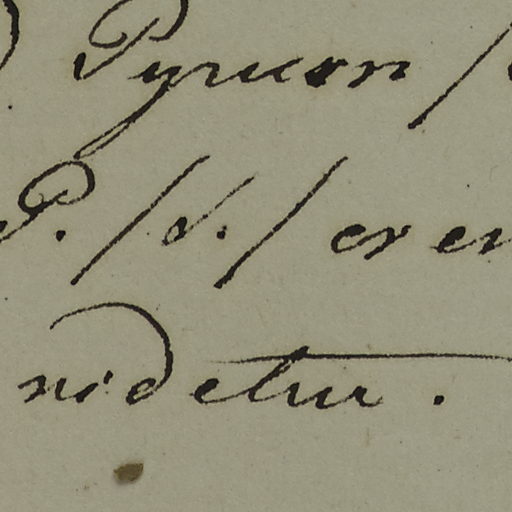 Pyrucon /
P. / d. / cren
videtur.